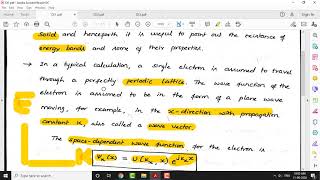 solid and henceforth it is useful to point out the existence of
energy bands and some of their properties.
→ In a typical calculation, a single electron is assumed to travel
through a perfectly periodic lattice. The wave function of the
electron is assumed to be in the form of a plane wave
moving, for example, in the x-direction with propagation
constant k, also called a wave vector.
The space-dependent wave function for the electron is
ψₖ(x) = U(kₓ, x) e^{jkₓx}